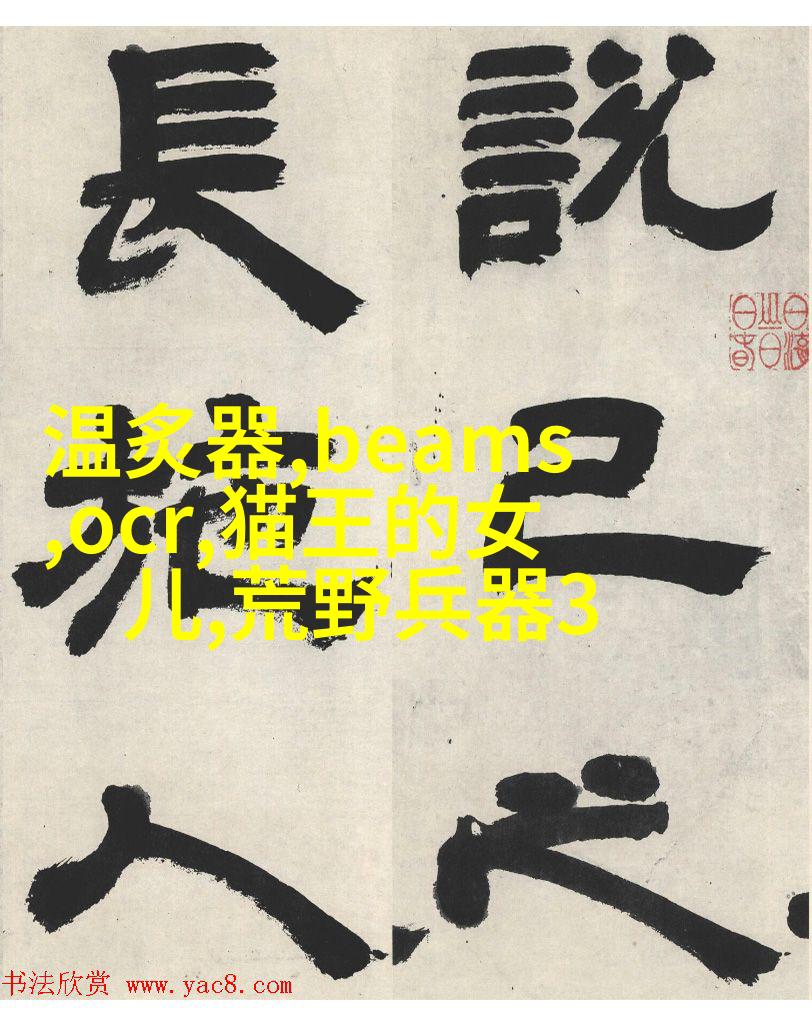 說己之
長施人
温炙器,beams
,ocr,猫王的女
儿,荒野兵器3
书法欣赏 www.yac8.com